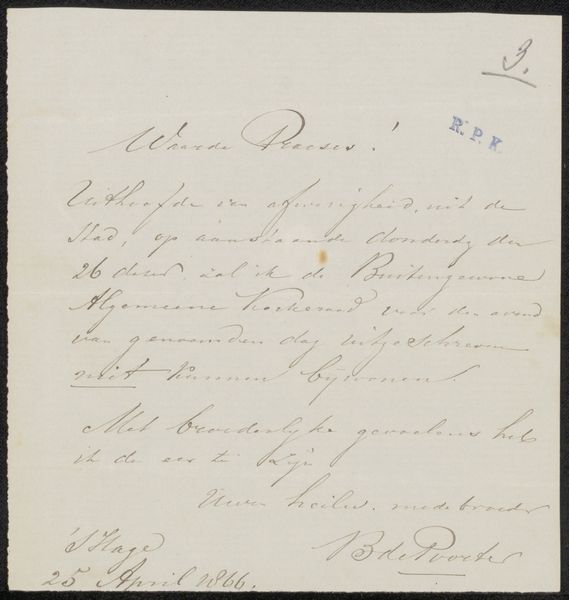 3.
R.P.K.
Waarde Praeses!
Uithoofde van afwezigheid, uit de
Stad, op aanstaande donderdag den
26 dezer, zal ik de Buitengewone
Algemeene voor den avond
van genoemden dag uitgeschreven
niet kunnen bijwonen.
Met broederlijke gevoelens heb
ik de eer te zijn
Uwen heilw. medebroeder
B de Poorter
'S Hage
25 April 1866.